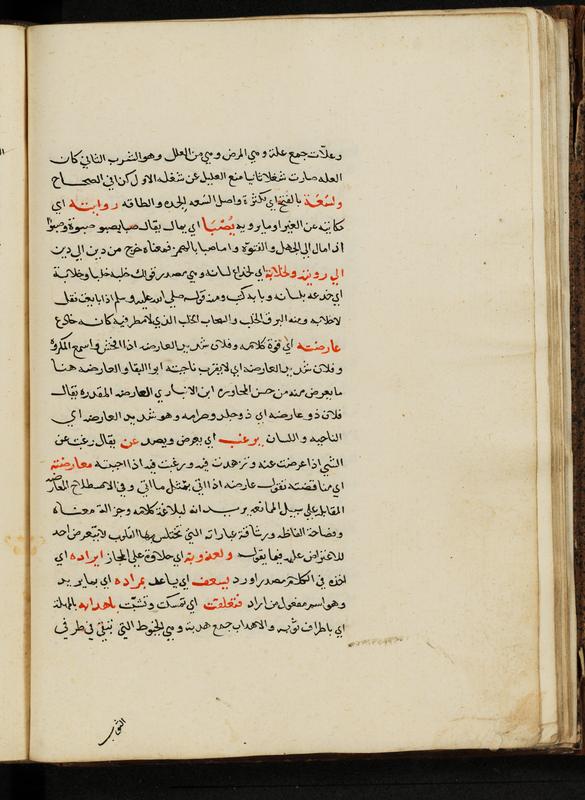 وعلّات جمع علة وهي المرض وهي من العلل وهو الشرب الثاني كان
العلة صارت شغلا ثانيا منع العليل عن شغله الاول كن افى الصحاح
ولسعة بالفتح اي بكثرة واصل السعة الجدة والطاقة روايته اي
حكايته عن الغير او ما رويه يُصْبَا اي يمال يقال صبا يصبو صبوة وصبوّا
اذا مال الى الجهل والفتوة واما صبا بالهمز فمعناه خرج من دين الى دين
الى رويته ولخلابة اي لخداع لسانه وهي مصدر قولك خلبه خلبا وخلابة
اي خدعه بلسانه وبابه كتب ومنه قوله صلى الله عليه وسلم اذا بايعت فقل
لا خلابة ومنه البرق الخلب والسحاب الخلب الذي لا مطر فيه كانه خادع
عارضته اي قوة كلامه وفلان شديد العارضة اذا افحش واسمع المكروه
وفلان شديد العارضة اي لا يقرب ناحيته ابو البقا والعارضة هنا
ما يعرض منه من حسن المحاورة ابن الانباري العارضة المقدرة يقال
فلان ذو عارضة اي ذو جلد وصرامة وهو شديد العارضة اي
الناحية واللسان يرغب اي يعرض ويصد عن يقال رغبت عن
الشي اذا عرضت عنه وتزهدت فيه ورغبت فيه اذا احببته معارضته
اي مناقضته تقول عارضه اذا اتى بمثل ما اتى وفي الاصطلاح المعارضة
المقابلة على سبيل الممانعة يريد انه لبلاغة كلامه وجزالة معناه
وفصاحة الفاظه ورشاقة عباراته التي تختلس بها القلوب لا يتعرض احد
للاعتراض عليه فيما يقول ولعذوبة اي حلاوة على المجاز ايراده اي
اخذه في الكلام مصدر اورد يسعف اي يساعد بمراده اي بما يريد
وهو اسم مفعول من اراد فتعلقت اي تمسكت وتشبثت باهدابه بالمهملة
اي باطراف ثوبه والاهداب جمع هدبة وهي الخيوط التي تبقى في طرفي
الثياب